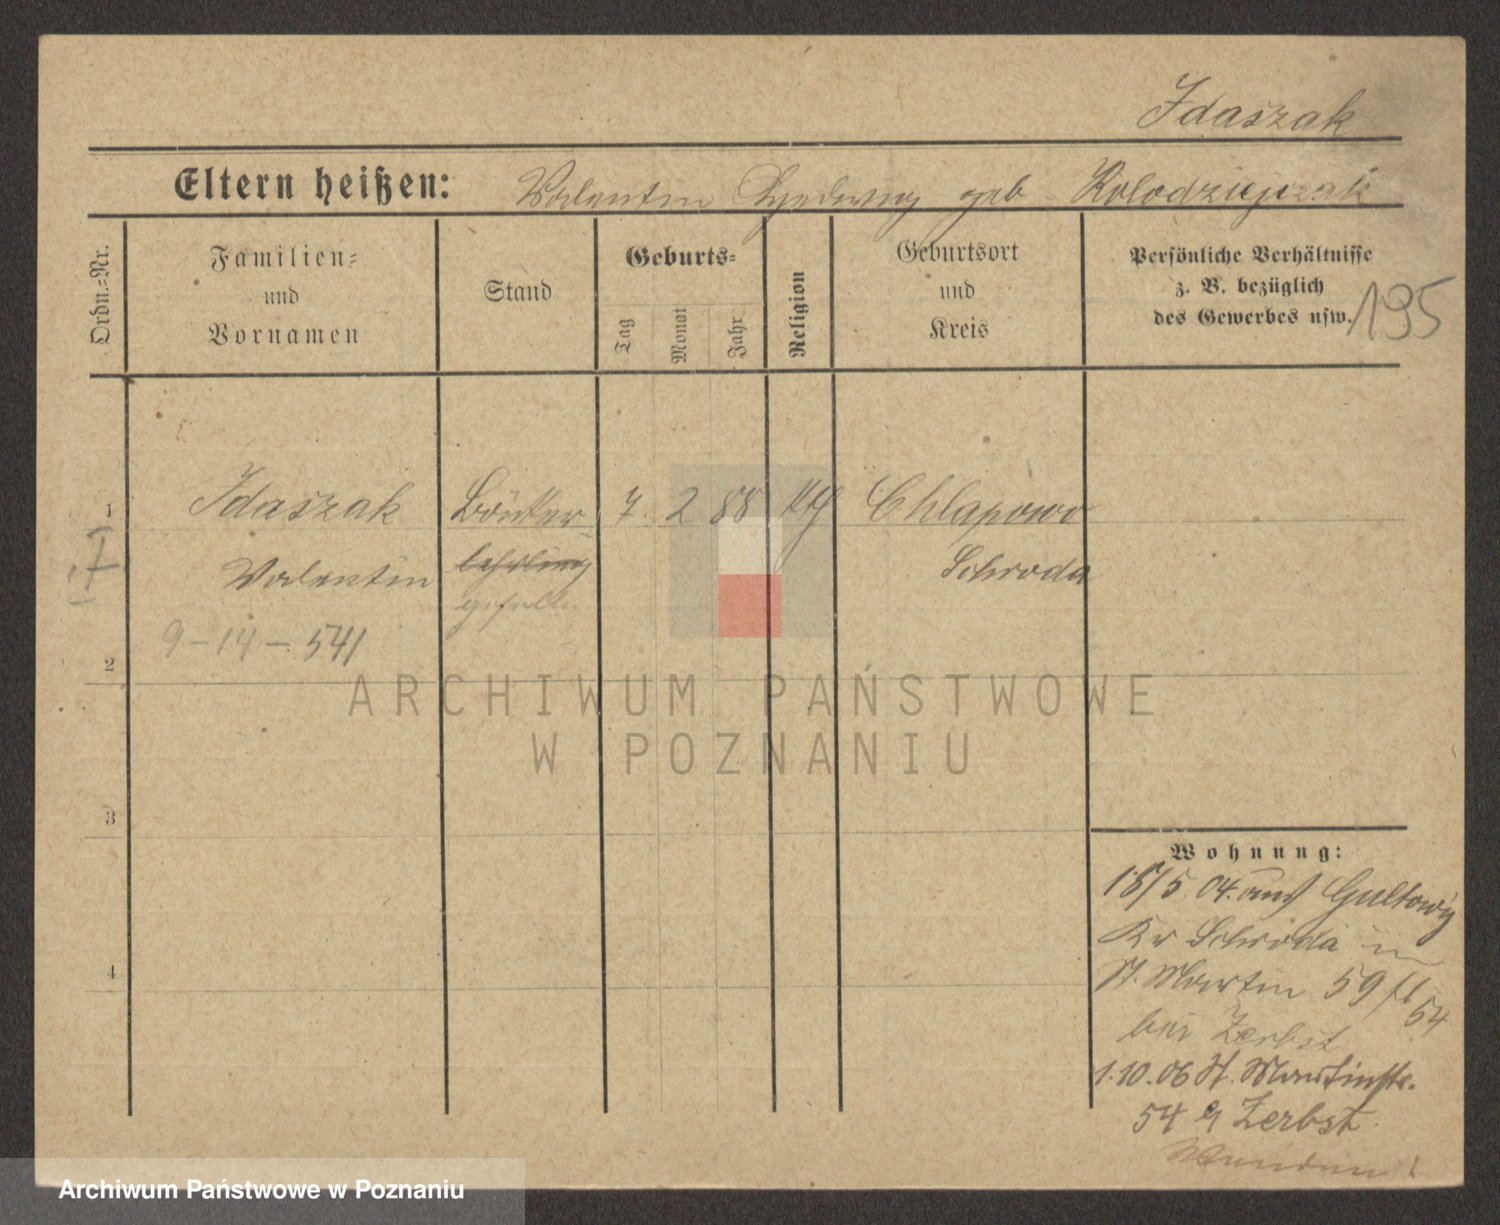 Idaszak
Eltern heißen: Valentin Hedwig geb Kolodziejczak
Ordn.-Nr.
Familien-
und
Vornamen
Stand
Geburts-
Tag
Monat
Jahr
Religion
Geburtsort
und
Kreis
Persönliche Verhältnisse
z. B. bezüglich
des Gewerbes usw.
195
1
Idaszak
Valentin
9-14-541
lehrling
7. 2 88 kth
Chlapowo
Schroda
2
3
4
Wohnung:
18/5. 04. aus Gultowy
Kr Schroda in
St. Martin 59
54
bei Zerbst
1.10.06 St. Martinstr.
54 Zerbst.
ARCHIWUM PAŃSTWOWE
W POZNANIU
Archiwum Państwowe w Poznaniu